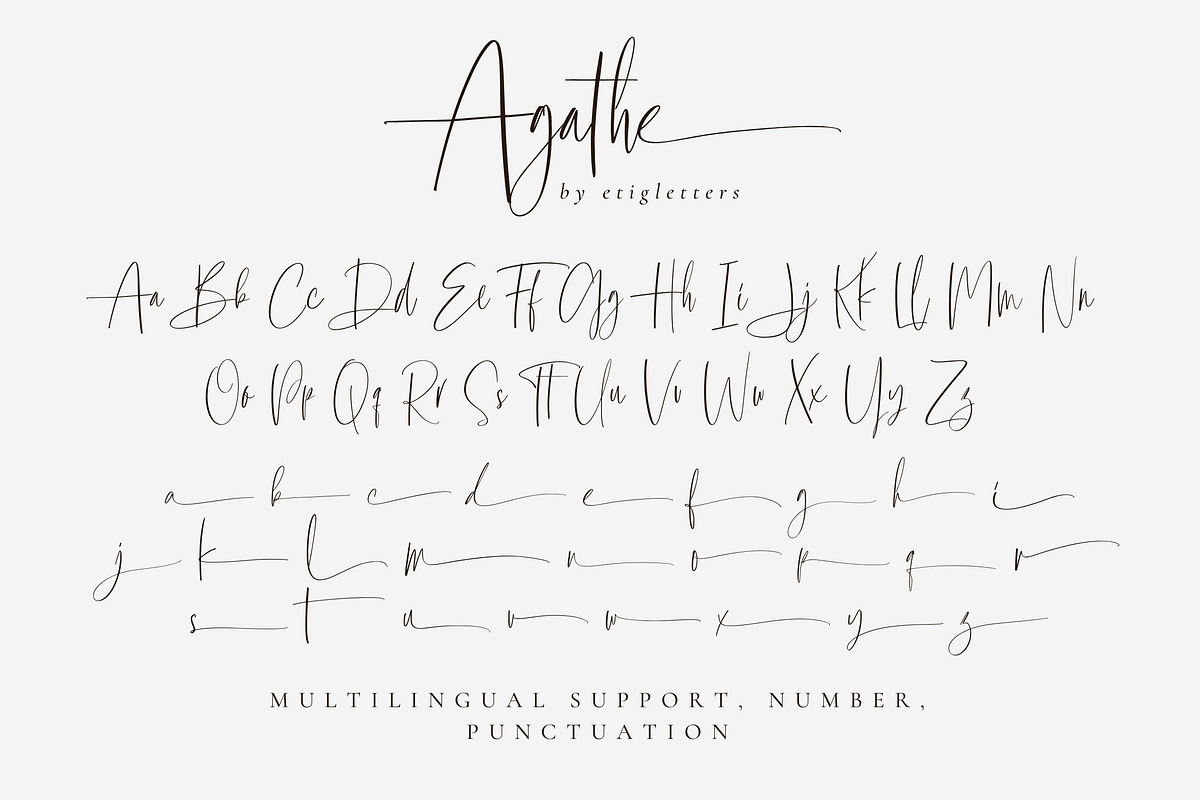 Agathe
by etigletters
Aa Bb Cc Dd Ee Ff Gg Hh Ii Jj Kk Ll Mm Nn
Oo Pp Qq Rr Ss Tt Uu Vv Ww Xx Yy Zz
a b c d e f g h i
j k l m n o p q r
s t u v w x y z
MULTILINGUAL SUPPORT, NUMBER,
PUNCTUATION